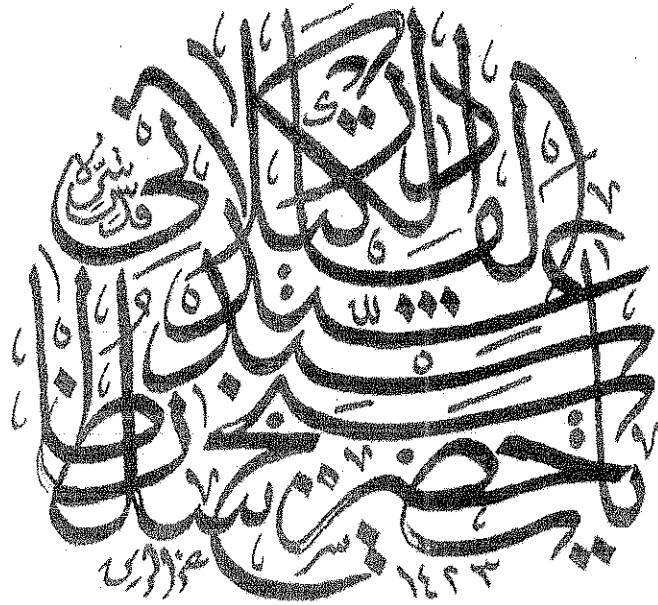 يا حضرت سلطان
شيخ سيد
عبد القادر الكيلاني
قدس سره
١٤٢٣